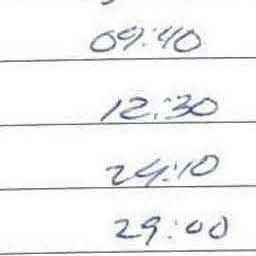 09:40
12:30
24:10
29:00